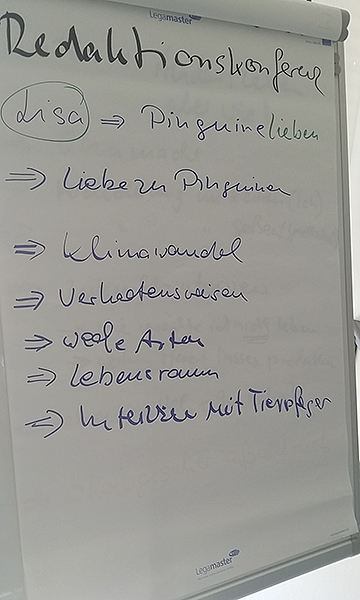 Legamaster
Redaktionskonferenz
Lisa ⇒ Pinguine lieben
⇒ Liebe zu Pinguinen
⇒ Klimawandel
⇒ Verhaltensweisen
⇒ Arten
⇒ Lebensraum
⇒ Interview mit Tierpfleger
Legamaster